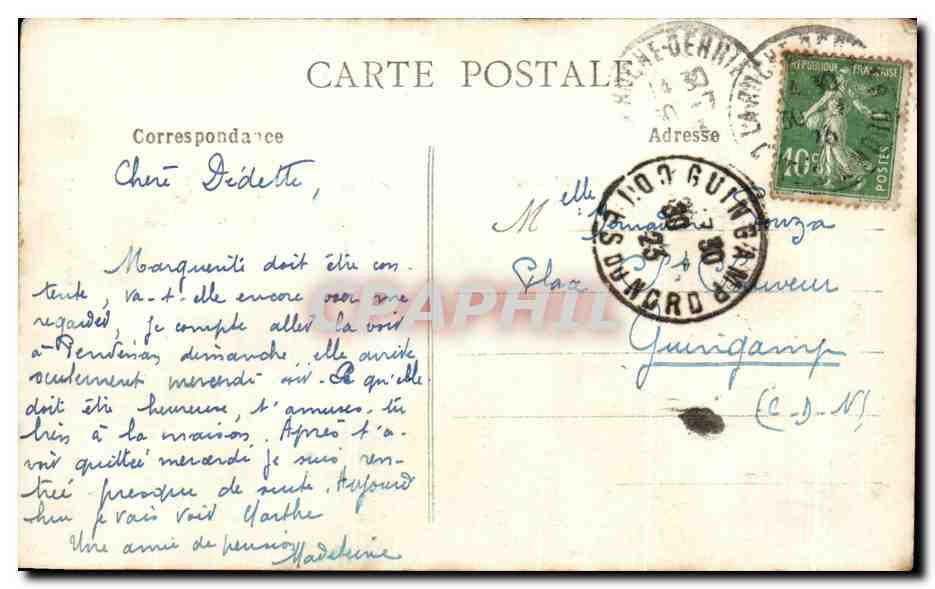 CARTE POSTALE
Correspondance
Adresse
RÉPUBLIQUE FRANÇAISE
10c
POSTES
LA ROCHE-DERRIEN
14 30
30 -7
GUINGAMP
COTES DU NORD
30
25
Cherè Dédette,
Marguerite doit être con-
tente, va-t-elle encore me
regarder, je compte aller la voir
à dimanche, elle arrive
seulement mercredi soir. Ce qu'elle
doit être heureuse, t'amuses-tu
bien à la maison. Après t'a-
voir quittée mercredi je suis ren-
trée presque de suite. Aujourd
hui je vais voir Marthe
Une amie de pension
Madeleine
Melle Souza
Place St Sauveur
Guingamp
(C-D-N)
CPAPHIL